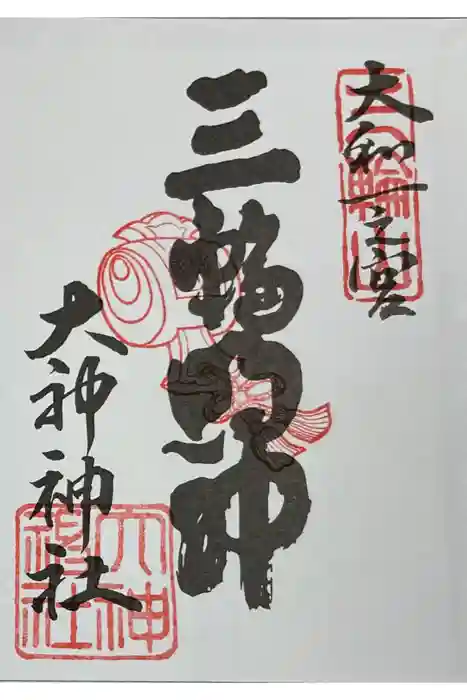 大和一之宮
三輪明神
大神神社
大神神社